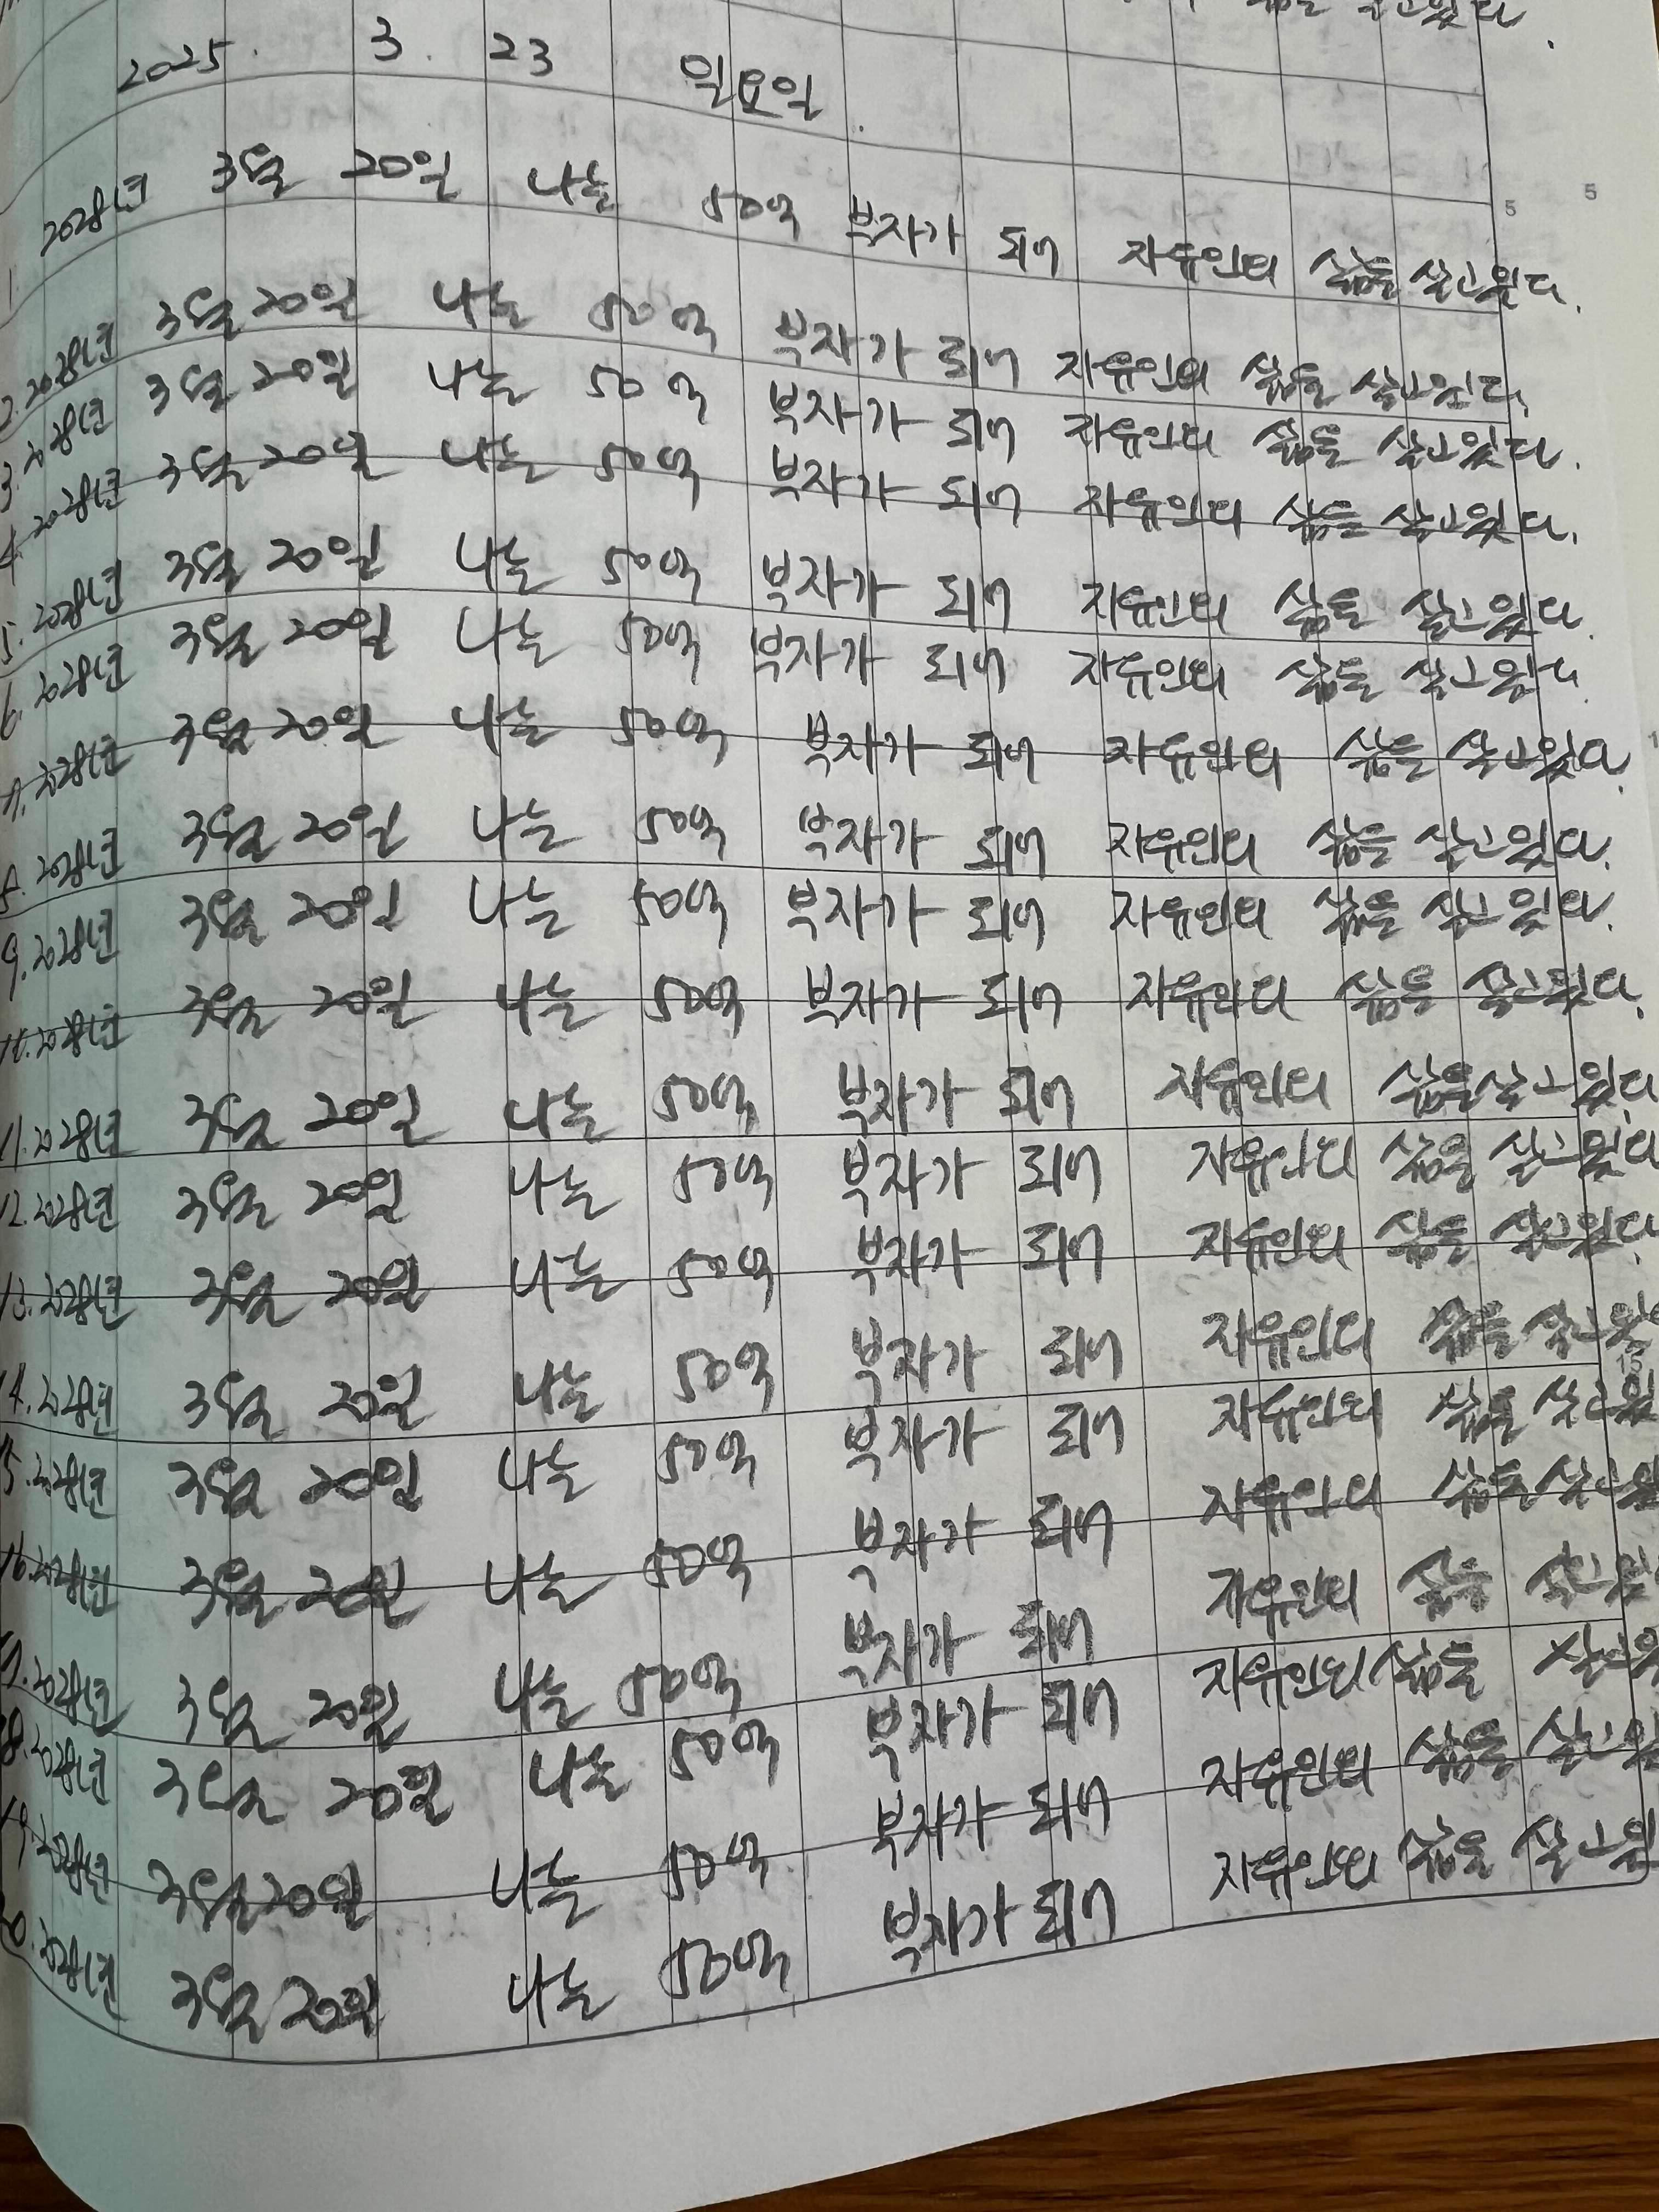 삶을 살고있다.
2025. 3. 23 일요일.
1. 2028년 3월 20일 나는 50억 부자가 되어 자유인의 삶을 살고있다.
2. 2028년 3월 20일 나는 50억 부자가 되어 자유인의 삶을 살고있다.
3. 2028년 3월 20일 나는 50억 부자가 되어 자유인의 삶을 살고있다.
4. 2028년 3월 20일 나는 50억 부자가 되어 자유인의 삶을 살고있다.
5. 2028년 3월 20일 나는 50억 부자가 되어 자유인의 삶을 살고있다.
6. 2028년 3월 20일 나는 50억 부자가 되어 자유인의 삶을 살고있다.
7. 2028년 3월 20일 나는 50억 부자가 되어 자유인의 삶을 살고있다.
8. 2028년 3월 20일 나는 50억 부자가 되어 자유인의 삶을 살고있다.
9. 2028년 3월 20일 나는 50억 부자가 되어 자유인의 삶을 살고있다.
10. 2028년 3월 20일 나는 50억 부자가 되어 자유인의 삶을 살고있다.
11. 2028년 3월 20일 나는 50억 부자가 되어 자유인의 삶을 살고있다.
12. 2028년 3월 20일 나는 50억 부자가 되어 자유인의 삶을 살고있다
13. 2028년 3월 20일 나는 50억 부자가 되어 자유인의 삶을 살고있다.
14. 2028년 3월 20일 나는 50억 부자가 되어 자유인의 삶을 살고있
15. 2028년 3월 20일 나는 50억 부자가 되어 자유인의 삶을 살고있
16. 2028년 3월 20일 나는 50억 부자가 되어 자유인의 삶을 살고있
17. 2028년 3월 20일 나는 50억 부자가 되어 자유인의 삶을 살고있
18. 2028년 3월 20일 나는 50억 부자가 되어 자유인의 삶을 살고있
19. 2028년 3월 20일 나는 50억 부자가 되어 자유인의 삶을 살고있
20. 2028년 3월 20일 나는 50억 부자가 되어 자유인의 삶을 살고있
5
5
15